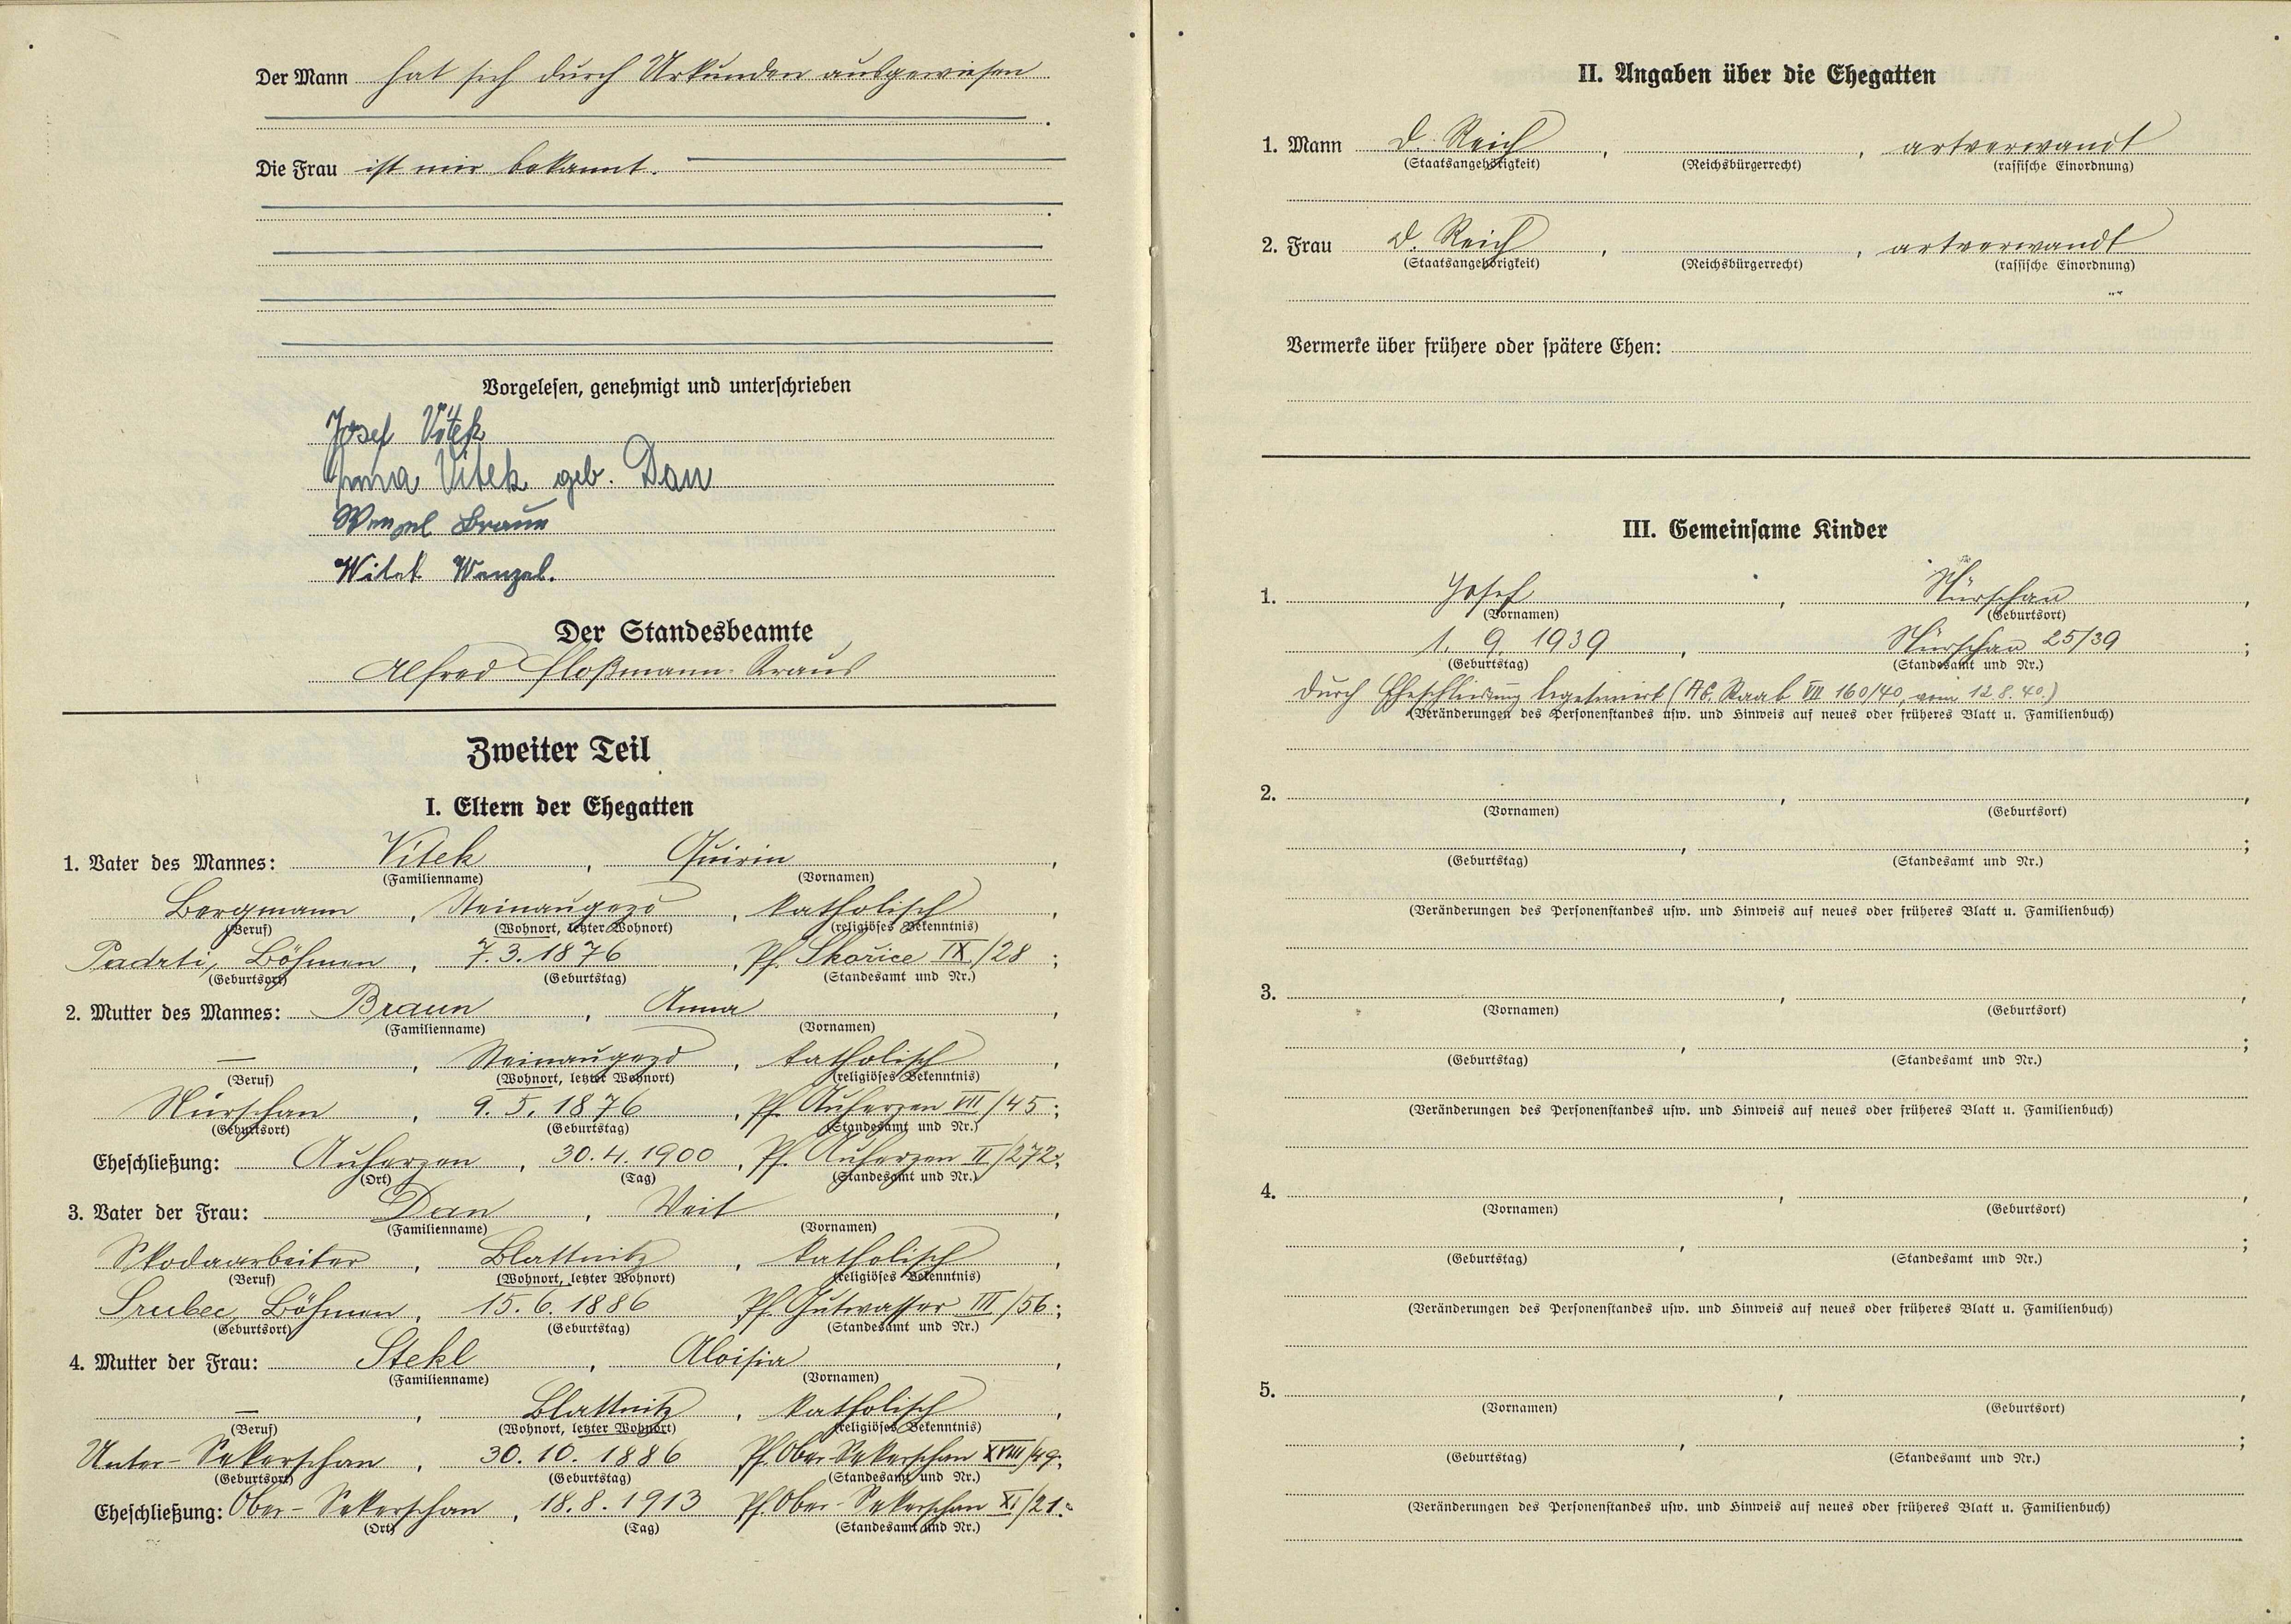 Der Mann hat sich durch Urkunden ausgewiesen
.
Die Frau ist mir bekannt.
.
Vorgelesen, genehmigt und unterschrieben
Josef Vítek
Anna Vitek geb. Dan
Wenzel Braun
Witek Wenzel.
Der Standesbeamte
Alfred Floßmann-Kraus
Zweiter Teil
I. Eltern der Ehegatten
1. Vater des Mannes: Vitek, Quirin,
(Familienname) (Vornamen)
Bergmann, Steinaugezd, katholisch,
(Beruf) (Wohnort, letzter Wohnort) (religiöses Bekenntnis)
Padrti, Böhmen, 7.3.1876, Pf. Skořice IX/28;
(Geburtsort) (Geburtstag) (Standesamt und Nr.)
2. Mutter des Mannes: Braun, Anna,
(Familienname) (Vornamen)
—, Steinaugezd, katholisch,
(Beruf) (Wohnort, letzter Wohnort) (religiöses Bekenntnis)
Nürschan, 9.5.1876, Pf. Auherzen VII/45;
(Geburtsort) (Geburtstag) (Standesamt und Nr.)
Eheschließung: Auherzen, 30.4.1900, Pf. Auherzen II/272.
(Ort) (Tag) (Standesamt und Nr.)
3. Vater der Frau: Dan, Veit,
(Familienname) (Vornamen)
Skodaarbeiter, Blattnitz, katholisch,
(Beruf) (Wohnort, letzter Wohnort) (religiöses Bekenntnis)
Srubec, Böhmen, 15.6.1886 Pf. Gutwasser III/56;
(Geburtsort) (Geburtstag) (Standesamt und Nr.)
4. Mutter der Frau: Stekl, Aloisia,
(Familienname) (Vornamen)
—, Blattnitz, katholisch,
(Beruf) (Wohnort, letzter Wohnort) (religiöses Bekenntnis)
Unter-Sekerschan, 30.10.1886 Pf. Ober-Sekerschan XVIII/49;
(Geburtsort) (Geburtstag) (Standesamt und Nr.)
Eheschließung: Ober-Sekerschan, 18.8.1913 Pf. Ober-Sekerschan XI/21.
(Ort) (Tag) (Standesamt und Nr.)
II. Angaben über die Ehegatten
1. Mann D. Reich, , artverwandt
(Staatsangehörigkeit) (Reichsbürgerrecht) (rassische Einordnung)
2. Frau D. Reich, , artverwandt
(Staatsangehörigkeit) (Reichsbürgerrecht) (rassische Einordnung)
Vermerke über frühere oder spätere Ehen:
III. Gemeinsame Kinder
1. Josef, Nürschan,
(Vornamen) (Geburtsort)
1. 9. 1939, Nürschan 25/39;
(Geburtstag) (Standesamt und Nr.)
durch Eheschließung legitimiert (AG. Staab VII 160/40 vom 12.8.40.)
(Veränderungen des Personenstandes usw. und Hinweis auf neues oder früheres Blatt u. Familienbuch)
2. , ,
(Vornamen) (Geburtsort)
, ;
(Geburtstag) (Standesamt und Nr.)
(Veränderungen des Personenstandes usw. und Hinweis auf neues oder früheres Blatt u. Familienbuch)
3. , ,
(Vornamen) (Geburtsort)
, ;
(Geburtstag) (Standesamt und Nr.)
(Veränderungen des Personenstandes usw. und Hinweis auf neues oder früheres Blatt u. Familienbuch)
4. , ,
(Vornamen) (Geburtsort)
, ;
(Geburtstag) (Standesamt und Nr.)
(Veränderungen des Personenstandes usw. und Hinweis auf neues oder früheres Blatt u. Familienbuch)
5. , ,
(Vornamen) (Geburtsort)
, ;
(Geburtstag) (Standesamt und Nr.)
(Veränderungen des Personenstandes usw. und Hinweis auf neues oder früheres Blatt u. Familienbuch)